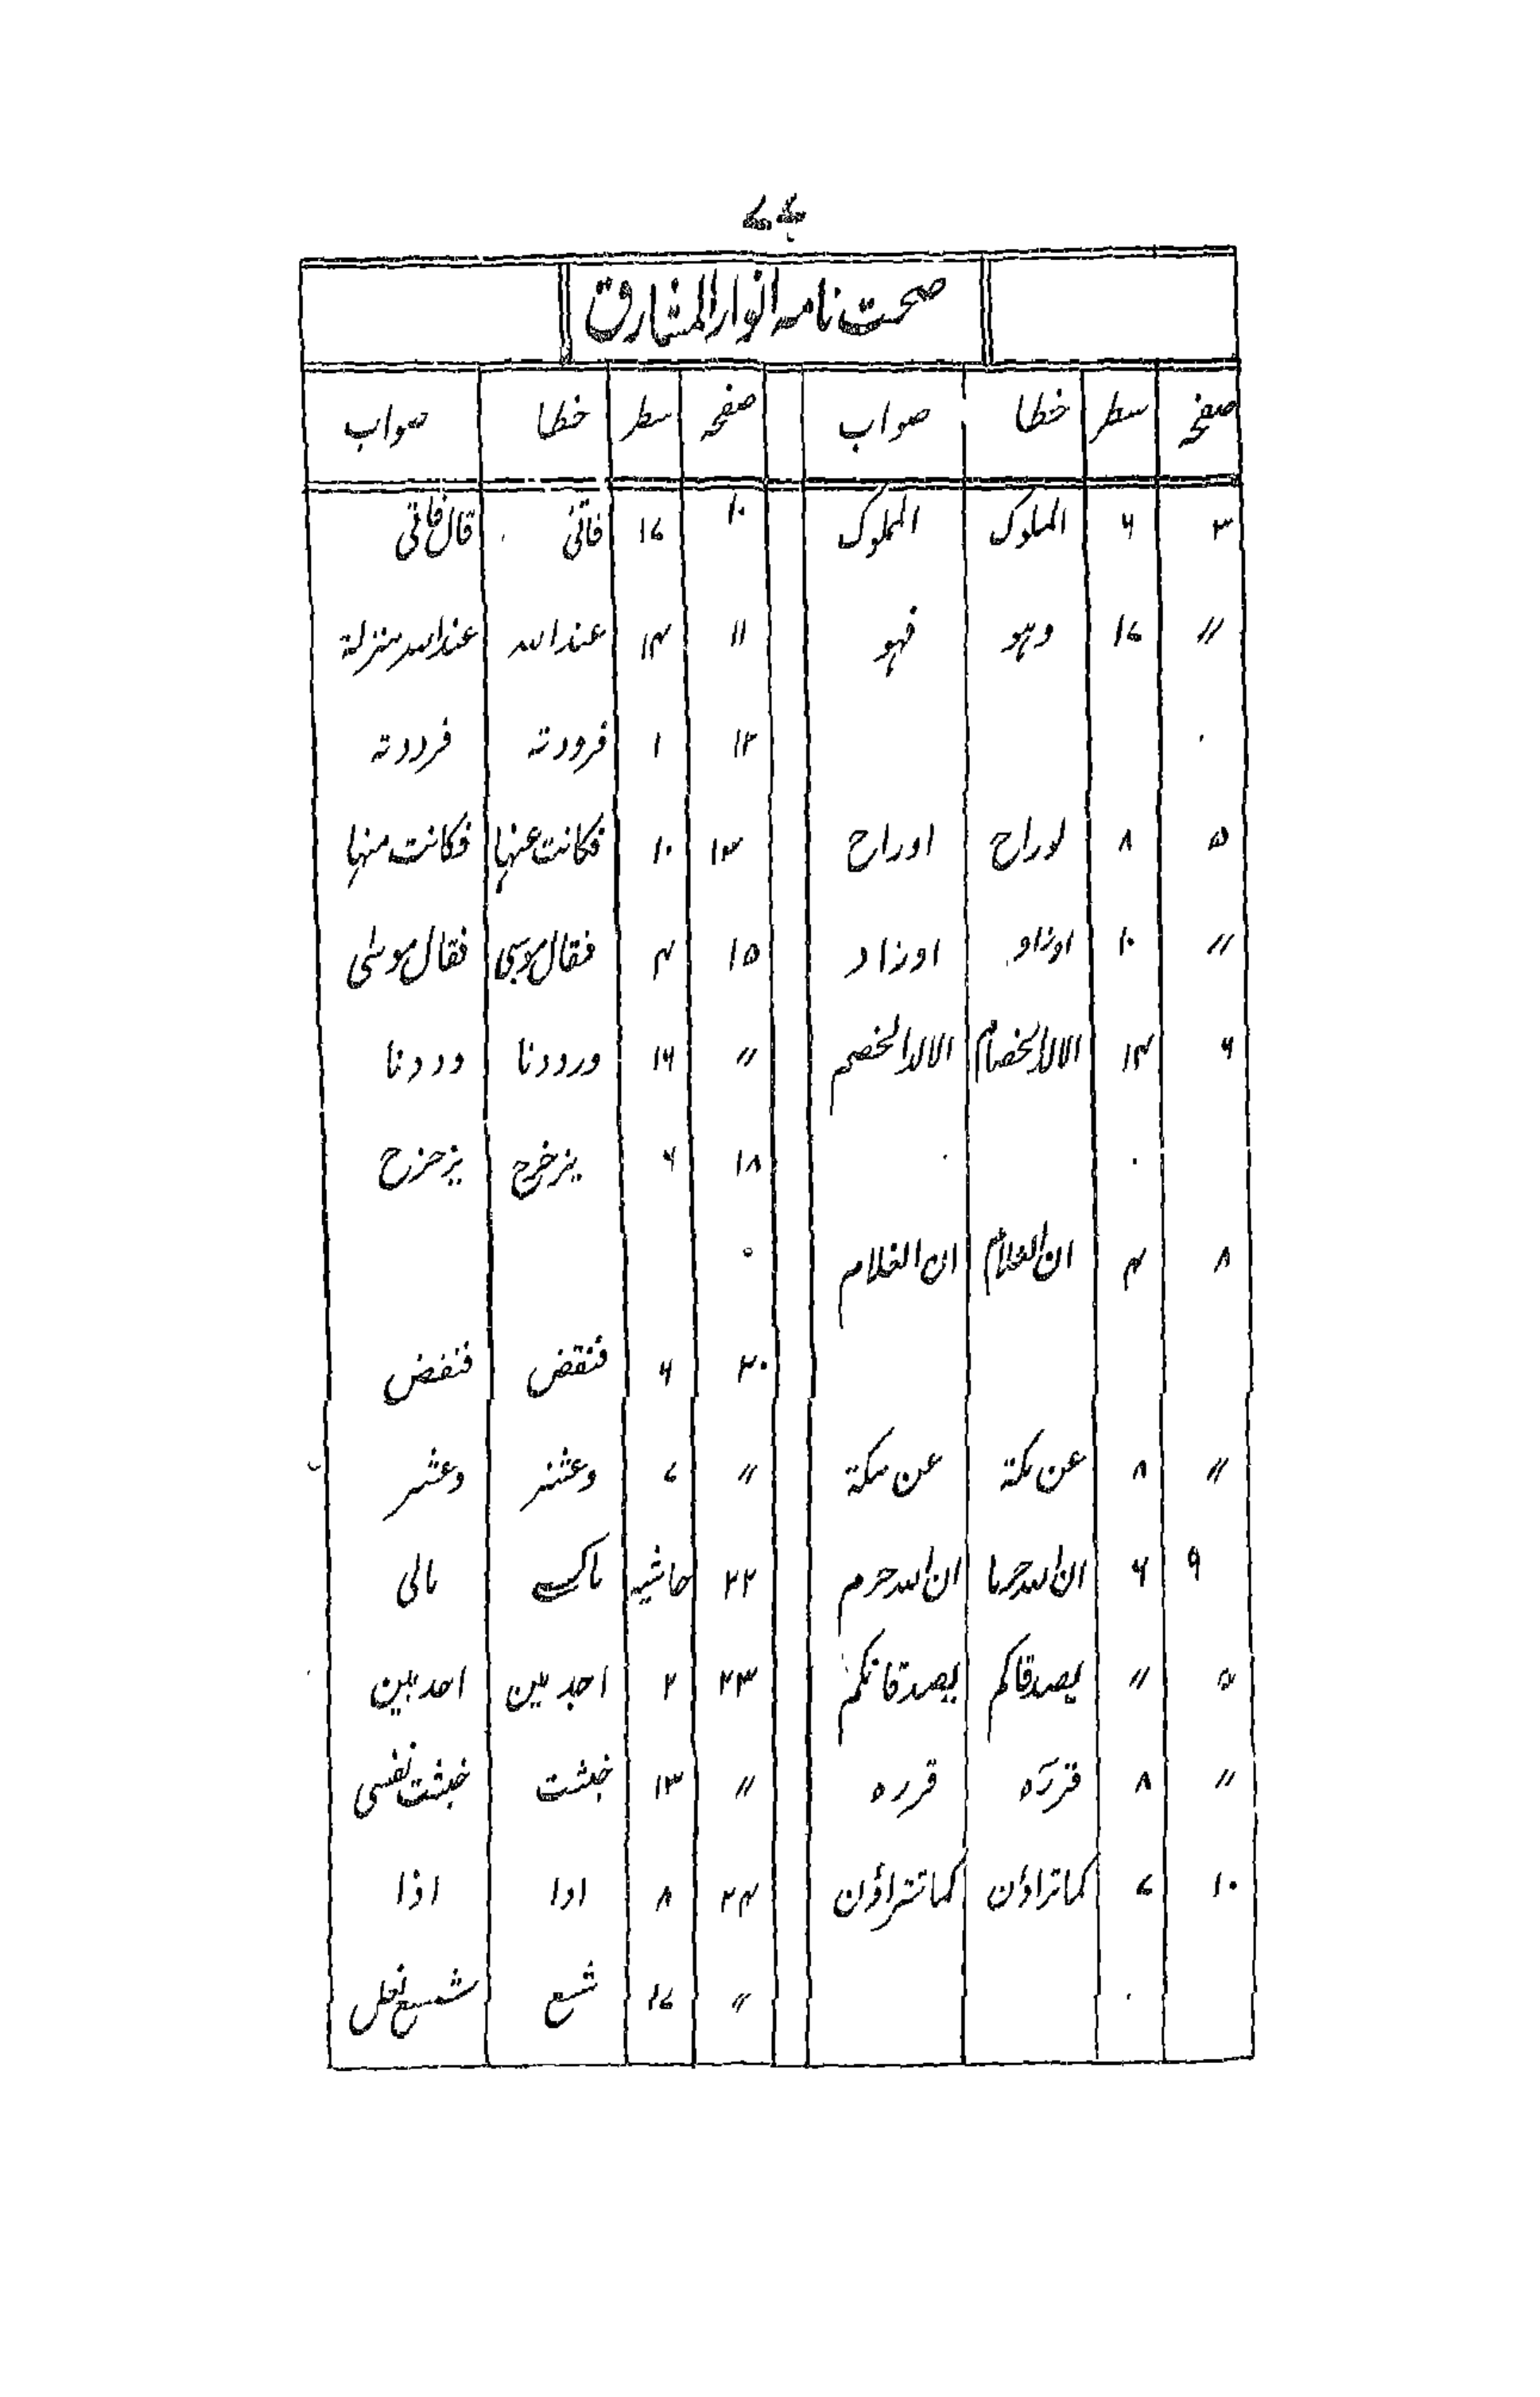 صحت نامہ انوار المشارق
صفحہ سطر خطا صواب صفحہ سطر خطا صواب
۳ ۶ الملوک المملوک ۱۰ ۱۷ فاتی قال فاتی
〃 ۱۷ وہو فہو 〃 ۱۴ عند اللہ عند اللہ منزلۃ
۱۲ ۱ فرودتہ فرددتہ
۵ ۸ لوراح اوراح ۱۳ ۱۰ فکانت عنہا فکانت منہا
〃 ۱۰ اوزاو اوزاد ۱۵ ۴ فقال موسی فقال موسٰی
۶ ۱۴ الالد الخصام الالد الخصم 〃 ۱۶ ورودنا وددنا
۱۸ ۶ یزخرح یزحزح
۸ ۴ ان العلام ان الغلام
۲۰ ۶ فنقض فنفض
〃 ۸ عن مکۃ عن مکۃ 〃 ۷ وعثنر وعشر
۹ ۶ ان اللہ حرما ان اللہ حرم ۲۲ حاشیہ مالی
۵ 〃 یصدقاکم یصدقانکم ۲۳ ۲ احد بین احد بین
〃 ۸ قررہ قررہ 〃 ۱۳ خبثت خبثت نفسی
۱۰ ۷ کماتراؤن کماتتراؤن ۲۴ ۸ ادا اذا
〃 ۱۷ شسع شسع نعل